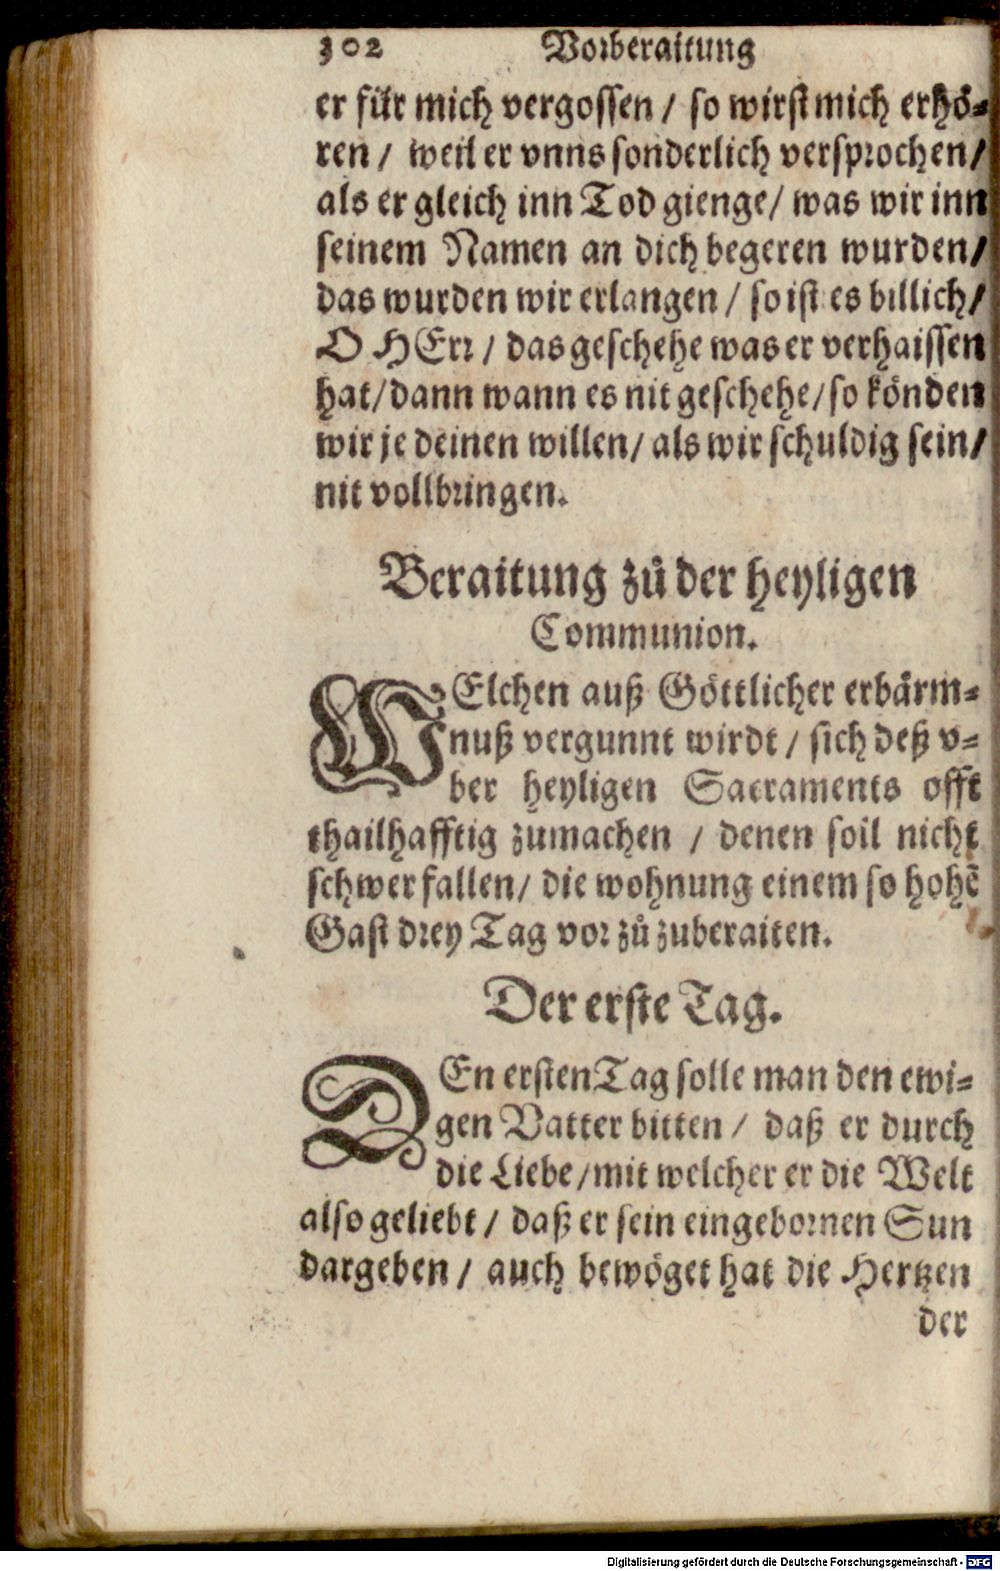 302 Vorberaitung
er für mich vergossen / so wirst mich erhö-
ren / weil er vnns sonderlich versprochen /
als er gleich inn Tod gienge / was wir inn
seinem Namen an dich begeren wurden /
das wurden wir erlangen / so ist es billich /
O HErr / das geschehe was er verhaissen
hat / dann wann es nit geschehe / so könden
wir je deinen willen / als wir schuldig sein /
nit vollbringen.
Beraitung zů der heyligen
Communion.
WElchen auß Göttlicher erbärm-
nuß vergunnt wirdt / sich deß v-
ber heyligen Sacraments offt
thailhafftig zumachen / denen soll nicht
schwer fallen / die wohnung einem so hohē
Gast drey Tag vor zů zuberaiten.
Der erste Tag.
DEn ersten Tag solle man den ewi-
gen Vatter bitten / daß er durch
die Liebe / mit welcher er die Welt
also geliebt / daß er sein eingebornen Sun
dargeben / auch bewöget hat die Hertzen
der
Digitalisierung gefördert durch die Deutsche Forschungsgemeinschaft - DFG